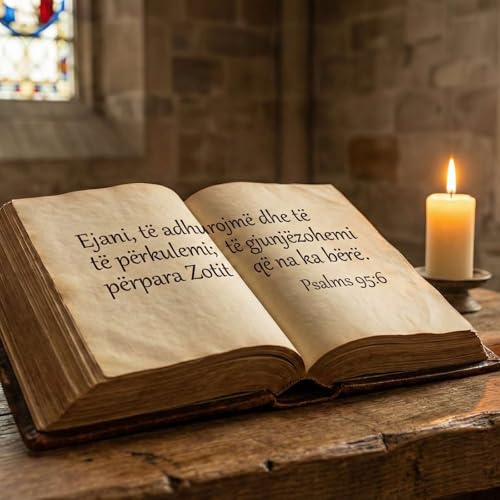 Ejani, të adhurojmë dhe të
të përkulemi; të gjunjëzohemi
përpara Zotit që na ka bërë.
Psalms 95:6